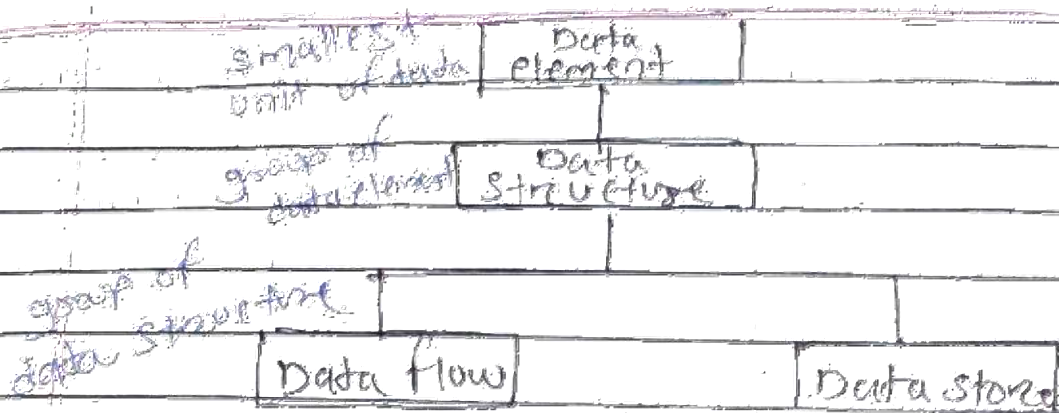 smallest
unit of data
Data
element
group of
data element
Data
Structure
group of
data structure
Data flow
Data store